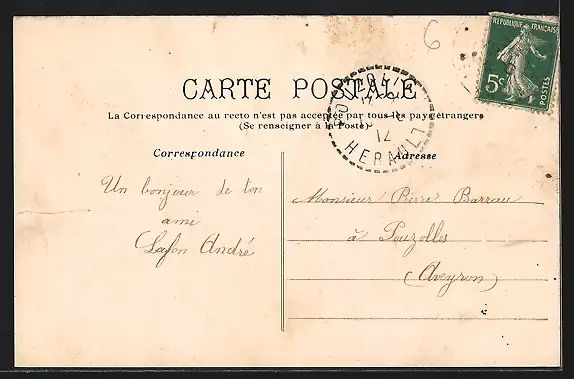 6
RÉPUBLIQUE FRANÇAISE
5c
POSTES
CARTE POSTALE
La Correspondance au recto n'est pas acceptée par tous les pays étrangers
(Se renseigner à la Poste)
HERAULT
14
Correspondance
Adresse
Un bonjour de ton
ami
Lafon André
Monsieur Pierre Barrau
à Pouzolles
(Aveyron)